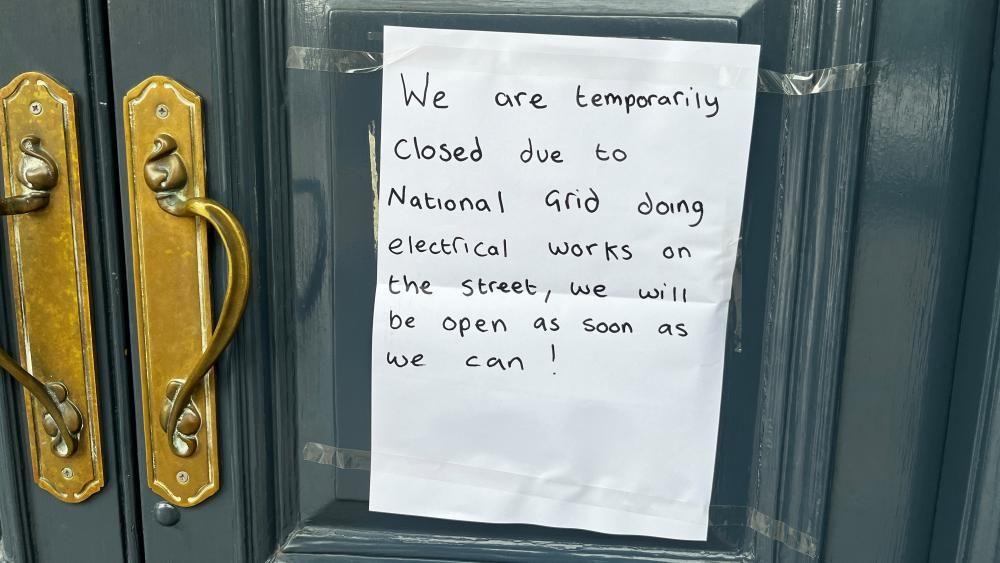 We are temporarily
closed due to
National Grid doing
electrical works on
the street, we will
be open as soon as
we can !